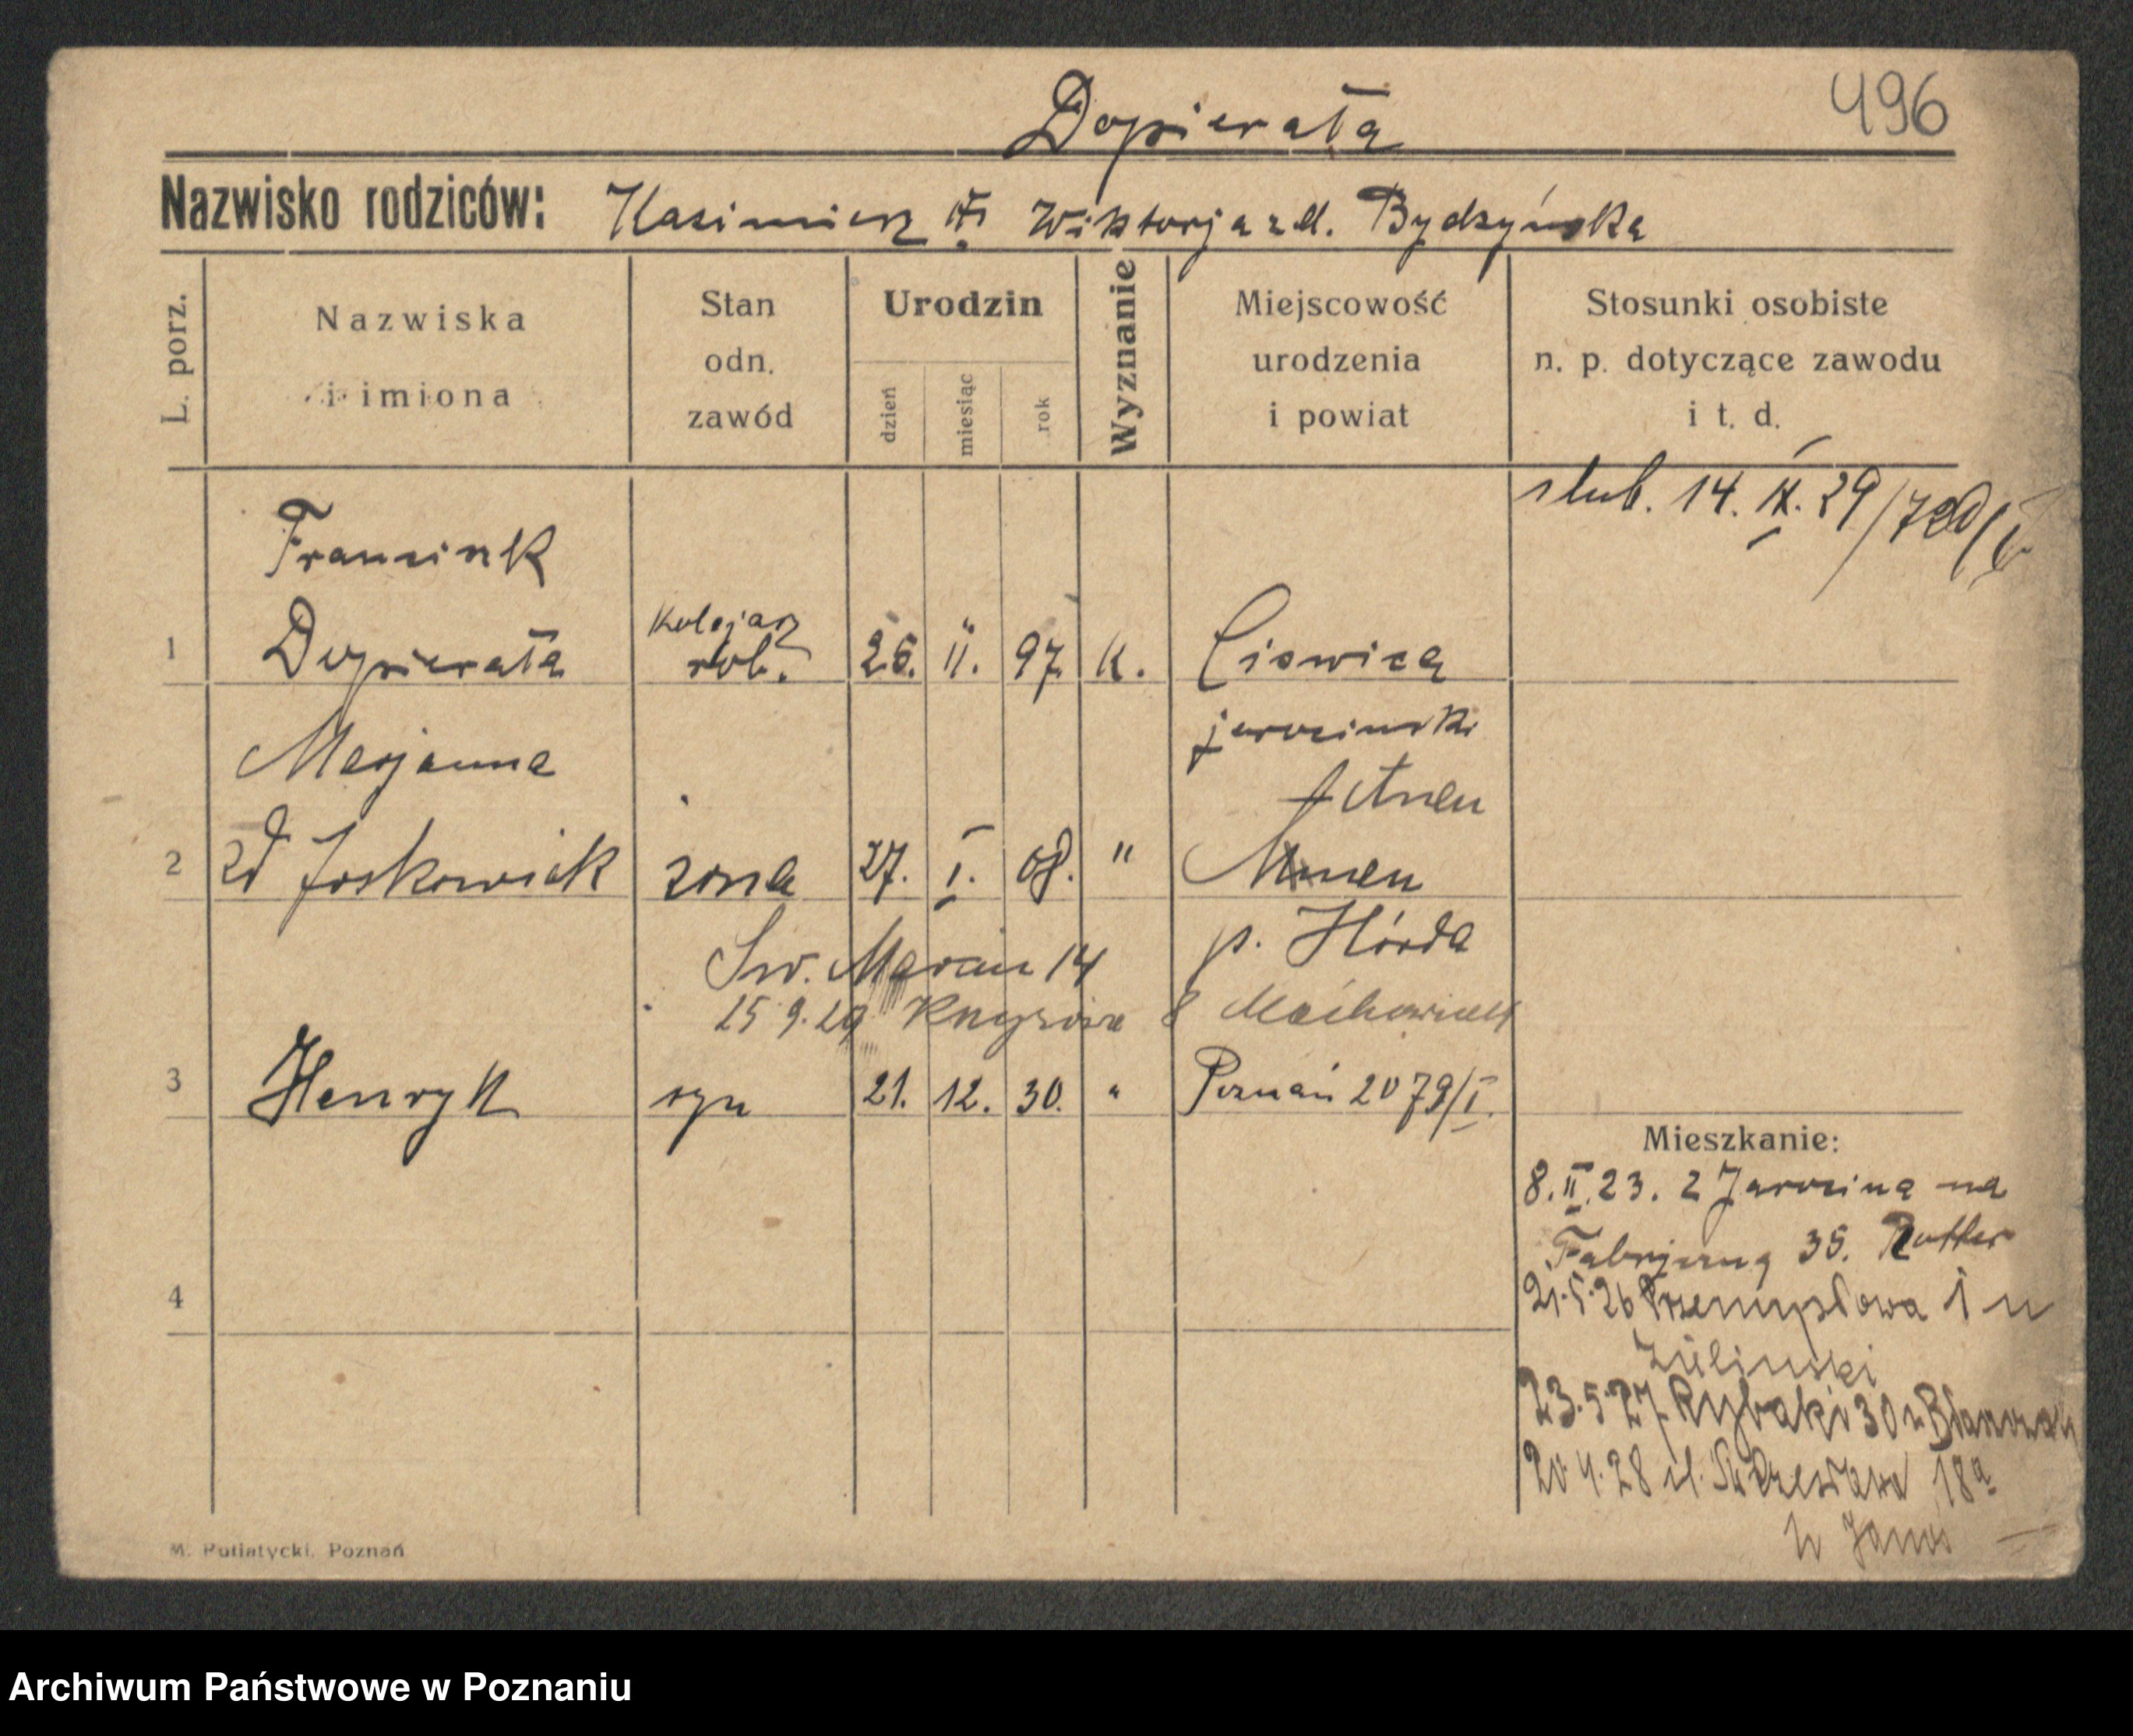 Dopierała
496
Nazwisko rodziców: Kasimierz Wiktorja zd. Bydzyńska
L. porz.
Nazwiska
i imiona
Stan
odn.
zawód
Urodzin
dzień
miesiąc
rok
Wyznanie
Miejscowość
urodzenia
i powiat
Stosunki osobiste
n. p. dotyczące zawodu
i t. d.
slub. 14. IX. 29/
Franciszek
1 Dopierała
Kolejarz
rob. 26. II. 97. K. Ciswica
jarocinski
Marjanna
Annen
2 zd Joskowiak zona 27. I. 08. "
p. Hörda
Św. Marcin 14
15 9.29 8
3 Henryk syn 21. 12. 30. " Poznań 2079/I.
Mieszkanie:
8. II. 23. z Jarocina na
35. Rotter
4
21.5.26 Przemysłowa 1 u
Zielinski
23.5.27 Rybaki 30 u
20.4.28 ul. 18a
u
M. Putiatycki, Poznań
Archiwum Państwowe w Poznaniu